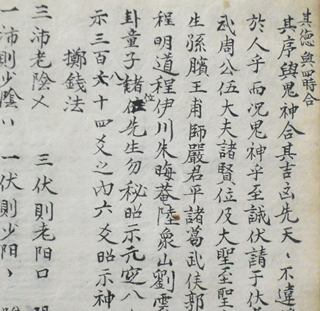 其德與四時合
其序與鬼神合其吉凶先天〻不違
於人乎而况鬼神乎至誠伏請于伏
武周公伍大夫諸賢位及大聖至聖
生孫臏王甫師嚴君平諸葛武侯郭
程明道程伊川朱晦菴陸象山劉雲
卦童子諸位先生勿秘昭示元空八
示三百八十四爻之內六爻昭示神
擲錢法
三沛老陰乂 三伏則老陽口
一沛則少陰〃 一伏則少陽、